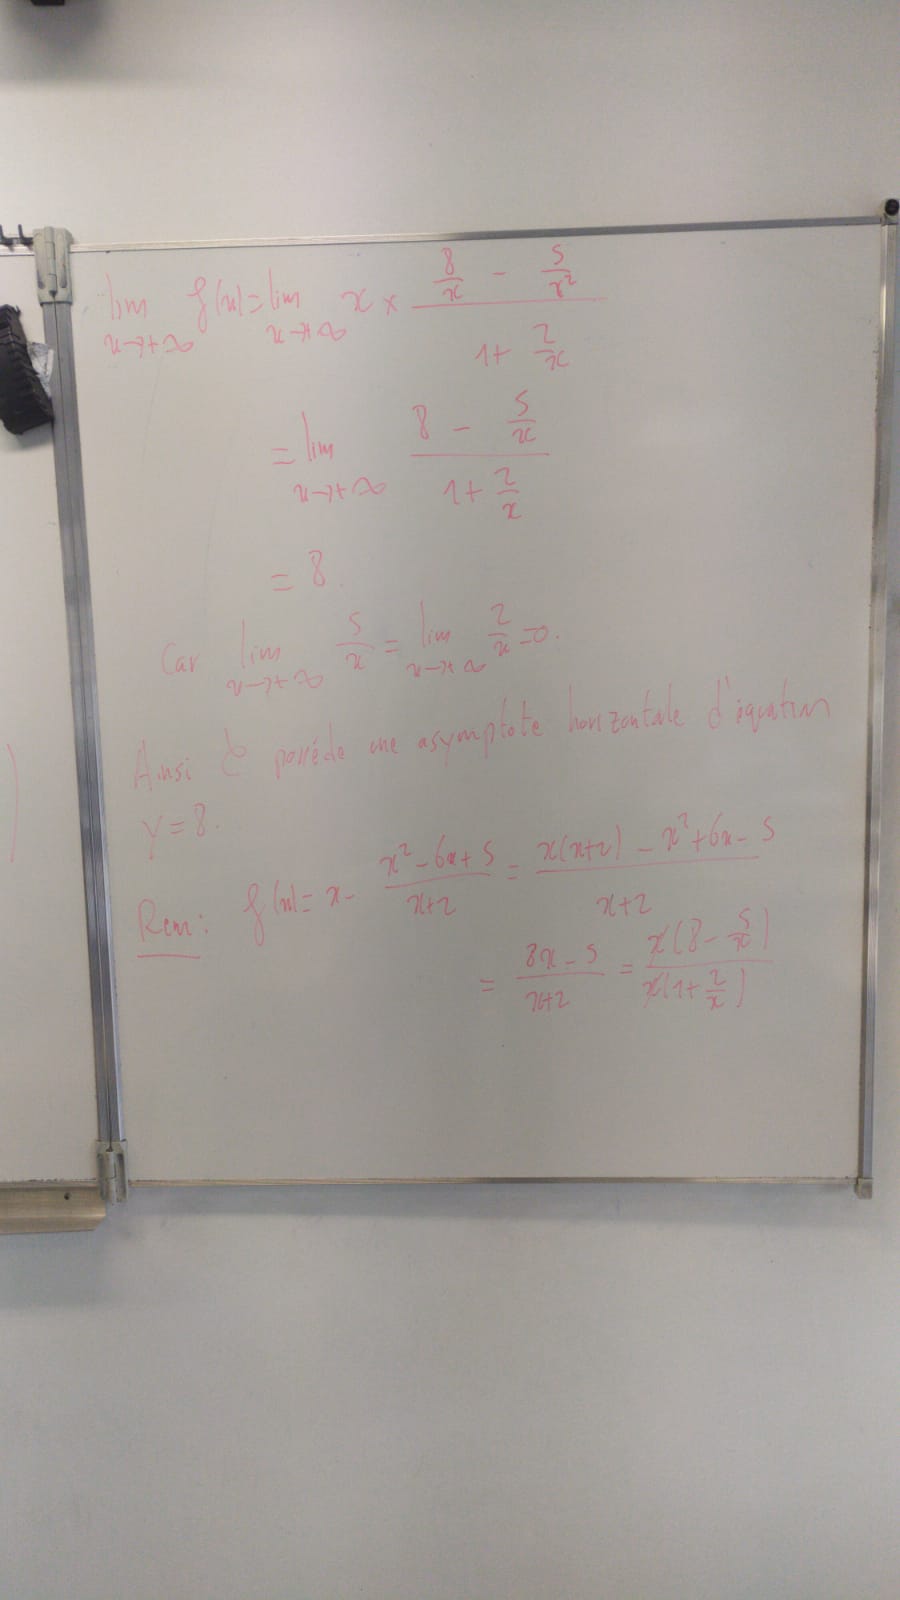 lim_{x→+∞} f(x) = lim_{x→+∞} x × (8/x - 5/x²)/(1 + 2/x)
= lim_{x→+∞} (8 - 5/x)/(1 + 2/x)
= 8.
Car lim_{x→+∞} 5/x = lim_{x→+∞} 2/x = 0.
Ainsi 𝒞 possède une asymptote horizontale d'équation
y = 8.
Rem: f(x) = x - (x² - 6x + 5)/(x+2) = (x(x+2) - x² + 6x - 5)/(x+2)
= (8x - 5)/(x+2) = x(8 - 5/x)/x(1 + 2/x)